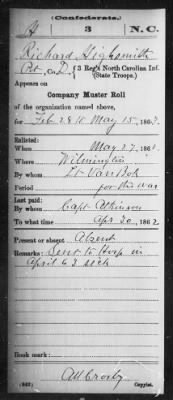 (Confederate.)
H 3 N.C.
Richard Highsmith
Pvt, Co. D, 3 Reg't North Carolina Inf.
(State Troops.)
Appears on
Company Muster Roll
of the organization named above,
for Feb 28 to May 15, 186
Enlisted:
When May 27, 186
Where Wilmington
By whom Lt Van
Period for the war
Last paid:
By whom Capt Atkinson
To what time Apr 30, 1862
Present or absent Absent
Remarks: Sent to Hosp in
April 63 sick
Book mark:
(642)
Copyist.